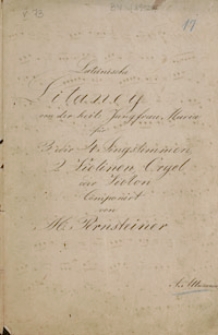 Lateinische
Litaney
von der heil. Jungfrau Maria
für
3 oder 4 Singstimmen
2 Violinen Orgel
und Violon
Componirt
von
M. Pernsteiner